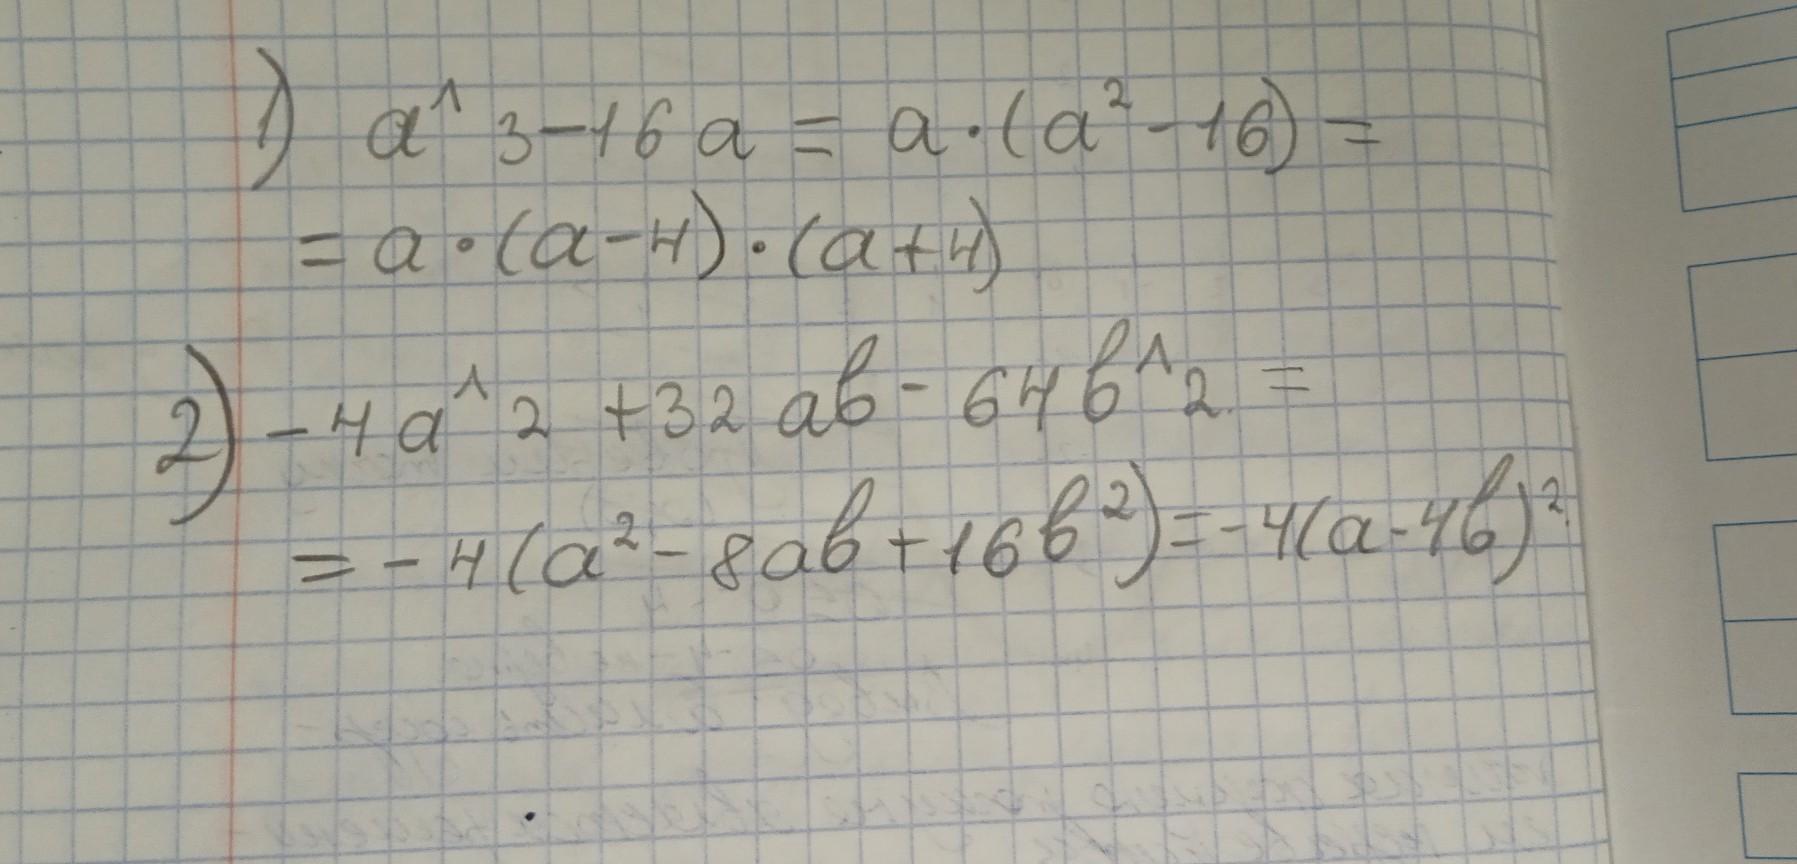 1) a^3-16a = a·(a²-16) =
= a·(a-4)·(a+4)
2) -4a^2 +32ab - 64b^2 =
= -4(a²-8ab+16b²)=-4(a-4b)²